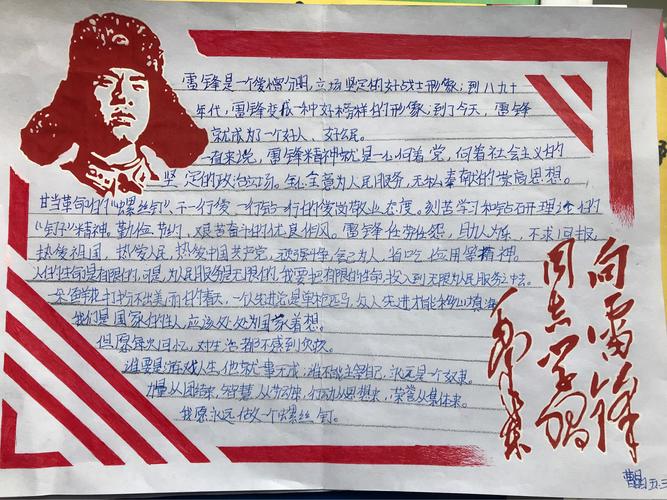 雷锋是一个爱憎分明,立场坚定的好战士形象;到八九十
年代,雷锋变成一种好榜样的形象;到了今天,雷锋
就成为了一个好人、好公民。
一直来说,雷锋精神就是一心向着党,向着社会主义的
坚定的政治立场。全心全意为人民服务,无私奉献的崇高思想。
甘当革命的"螺丝钉",干一行爱一行钻一行的爱岗敬业态度。刻苦学习和钻研理论的
"钉子"精神,勤俭节约,艰苦奋斗的优良作风。雷锋任劳任怨,助人为乐,不求回报,
热爱祖国,热爱人民,热爱中国共产党,
人的生命是有限的,可是,为人民服务是无限的,我要把有限的生命,投入到无限为人民服务之中去。
一朵鲜花打扮不出美丽的春天,一个人先进总是单枪匹马,众人先进才能移山填海
我们是国家的主人,应该处处为国家着想。
但愿每次回忆,对生活都不感到负疚。
谁要是游戏人生,他就一事无成;谁不能主宰自己,永远是一个奴隶。
力量从团结来,智慧从劳动来,行动从思想来,荣誉从集体来。
我愿永远做一个螺丝钉。
向雷锋
同志学习
毛泽东